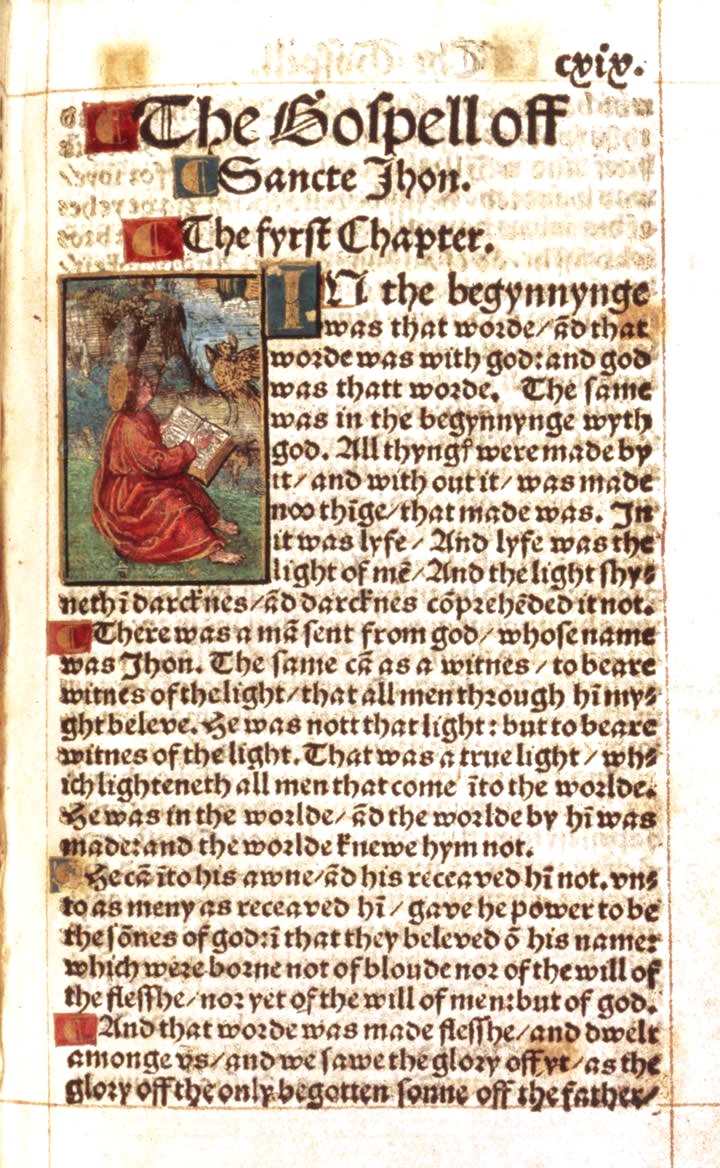 cxix.
The Gospell off
Sancte Jhon.
The fyrst Chapter.
IN the begynnynge
was that worde/ ãd that
worde was with god: and god
was thatt worde. The same
was in the begynnynge wyth
god. All thyngꝭ were made by
it/ and with out it/ was made
noo thĩge/ that made was. In
it was lyfe/ And lyfe was the
light of mẽ/ And the light shy⸗
neth ĩ darcknes/ ãd darcknes cõprehẽded it not.
There was a mã sent from god/ whose name
was Jhon. The same cã as a witnes/ to beare
witnes of the light/ that all men through hĩ my⸗
ght beleve. He was nott that light: but to beare
witnes of the light. That was a true light/ wh⸗
ich lighteneth all men that come ĩto the worlde.
He was in the worlde/ ãd the worlde by hĩ was
made: and the worlde knewe hym not.
He cã ĩto his awne/ ãd his receaved hĩ not. vn⸗
to as meny as receaved hĩ/ gave he power to be
the sõnes of god: ĩ that they beleved õ his name:
which were borne not of bloude nor of the will of
the flesshe/ nor yet of the will of men: but of god.
And that worde was made flesshe/ and dwelt
amonge vs/ and we sawe the glory off yt/ as the
glory off the only begotten sonne off the father/